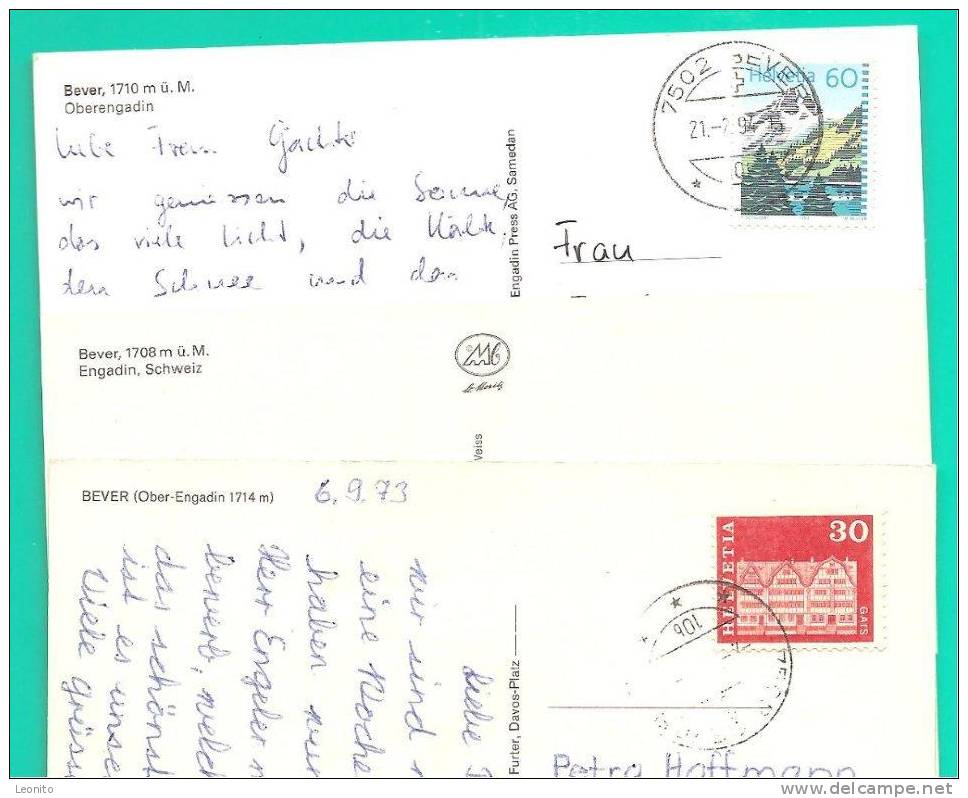 Bever, 1710 m ü. M.
Oberengadin
Liebe Frau
wir geniessen die Sonne,
das viele Licht, die Kälte,
den Schnee und den
Engadin Press AG, Samedan
7502 BEVER
21.-2.94-15
Helvetia 60
Frau
Bever, 1708 m ü. M.
Engadin, Schweiz
St. Moritz
Weiss
BEVER (Ober-Engadin 1714 m)
6.9.73
Liebe
wir sind
eine Woche
haben wir
Herr Engeler
bewerb, welch
das schönst
ist es unse
Viele Grüss
Furter, Davos-Platz
HELVETIA
30
GAIS
106
Petra Hoffmann
Leonito
www.delcampe.net